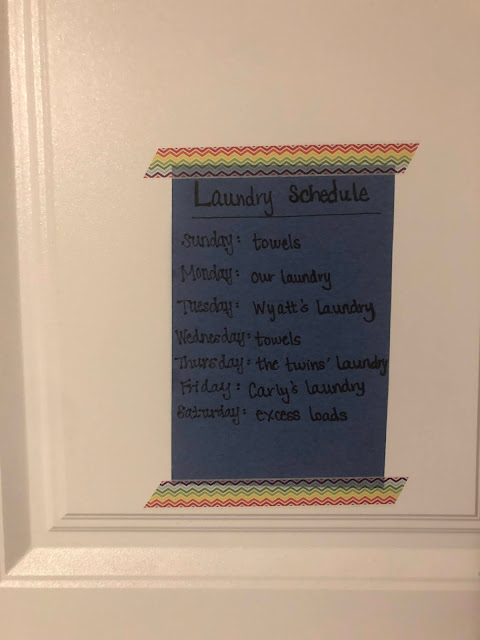 Laundry Schedule
Sunday: towels
Monday: our laundry
Tuesday: Wyatt's laundry
Wednesday: towels
Thursday: the twins' laundry
Friday: Carly's laundry
Saturday: excess loads